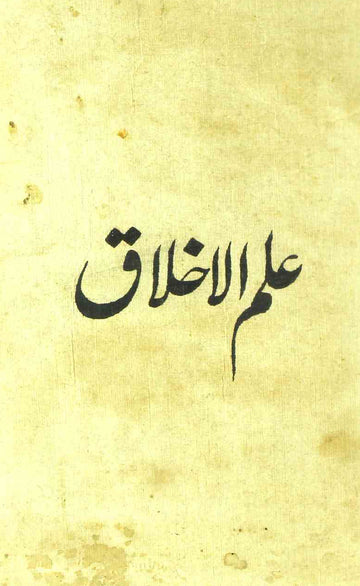 علم الاخلاق